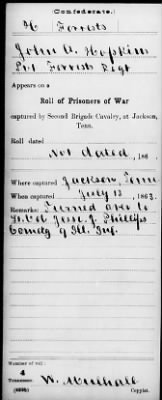 Confederate.
H Forrests
John A. Hopkins
Pvt Forrests Regt
Appears on a
Roll of Prisoners of War
captured by Second Brigade Cavalry, at Jackson,
Tenn.
Roll dated
Not dated, 186
Where captured Jackson, Tenn
When captured July 13, 1863.
Remarks: Turned over to
Lt Col Jesse J. Phillips
Comdg 9 Ill. Inf.
Number of roll:
4
Tennessee: W. Mulhall
Copyist.